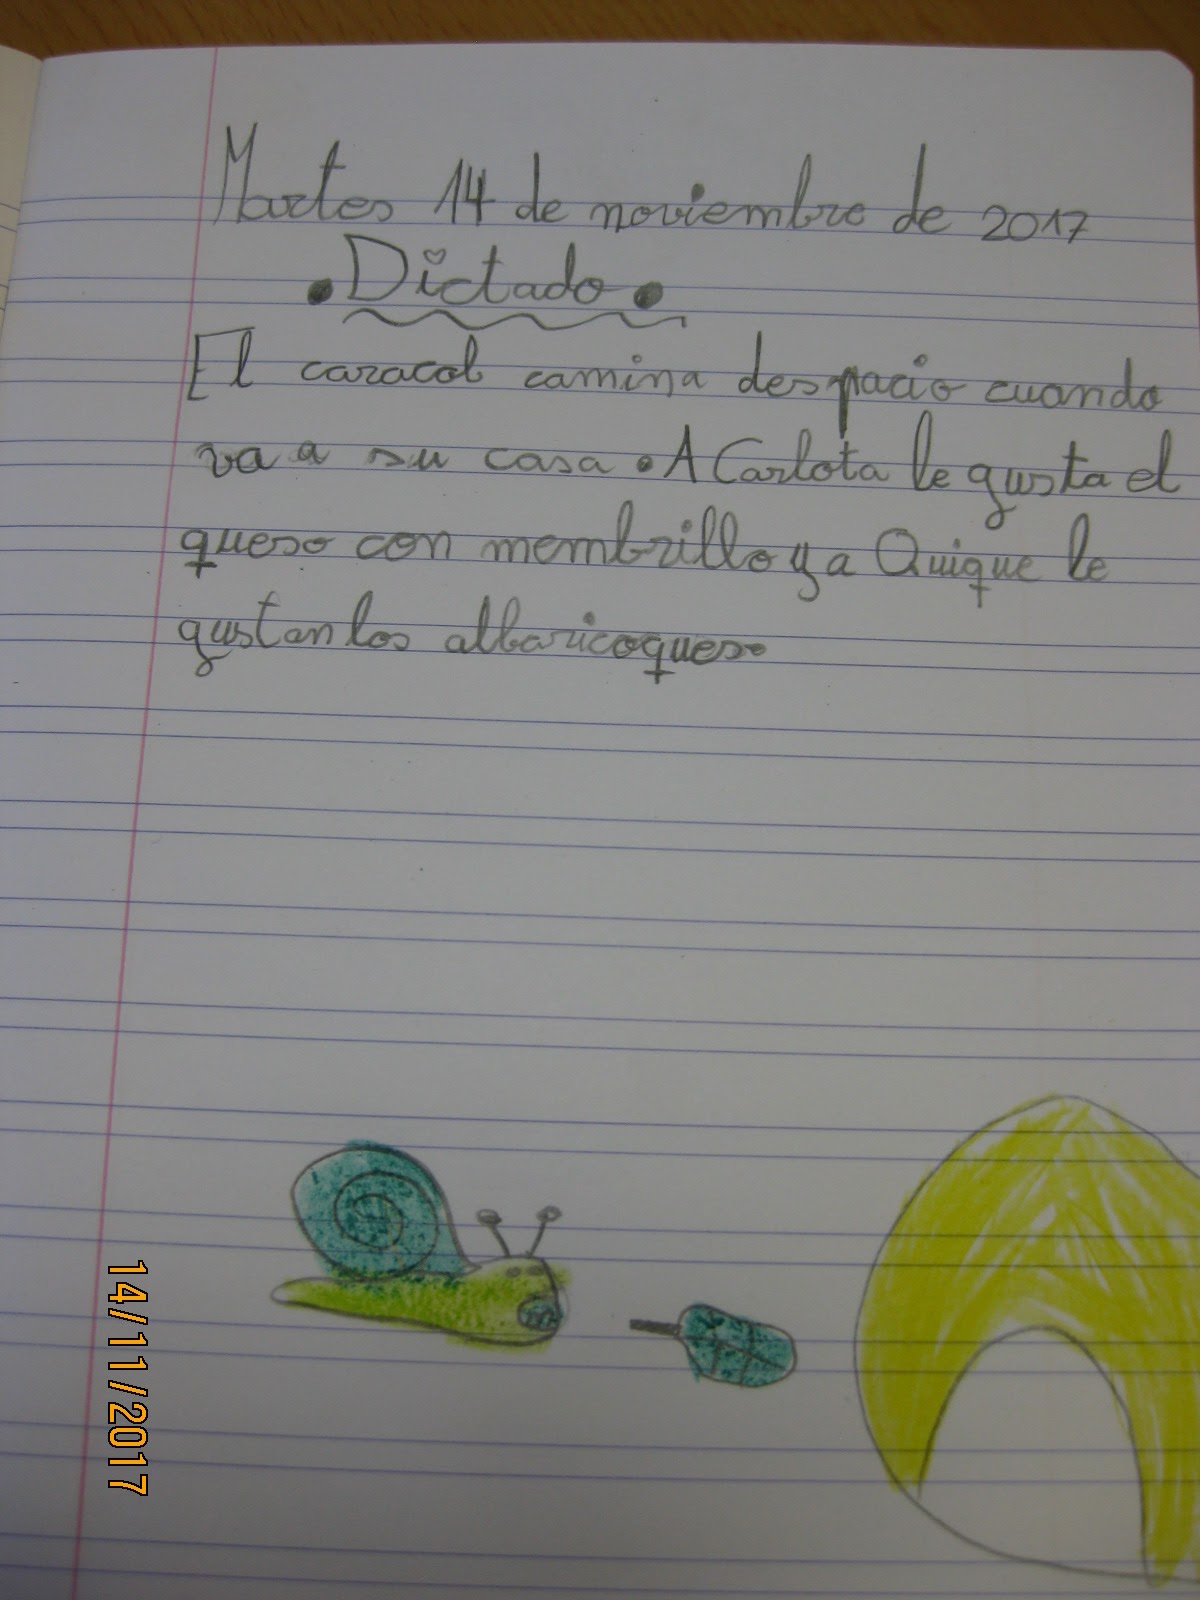 Martes 14 de noviembre de 2017
• Dictado •
El caracol camina despacio cuando
va a su casa. A Carlota le gusta el
queso con membrillo y a Quique le
gustan los albaricoques.
14/11/2017